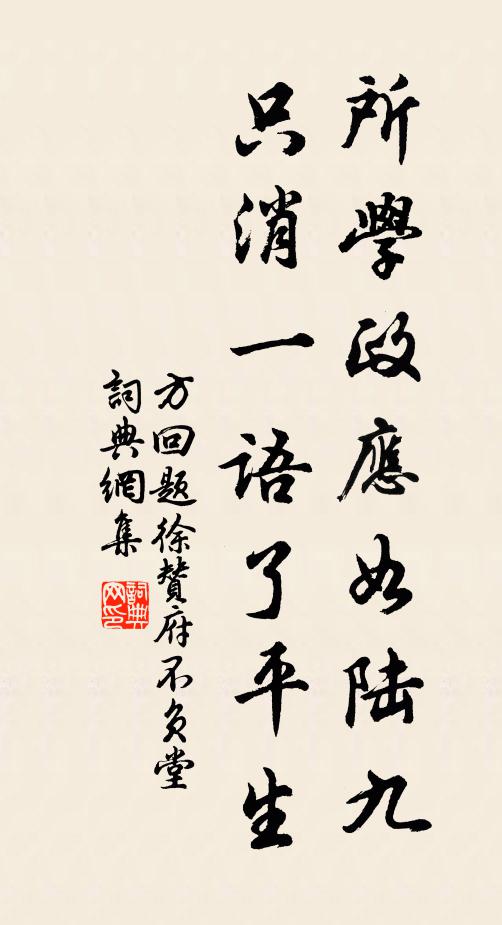 所學政應如陸九
只消一語了平生
方回題徐贊府不負堂
詞典網集
詞典
网印